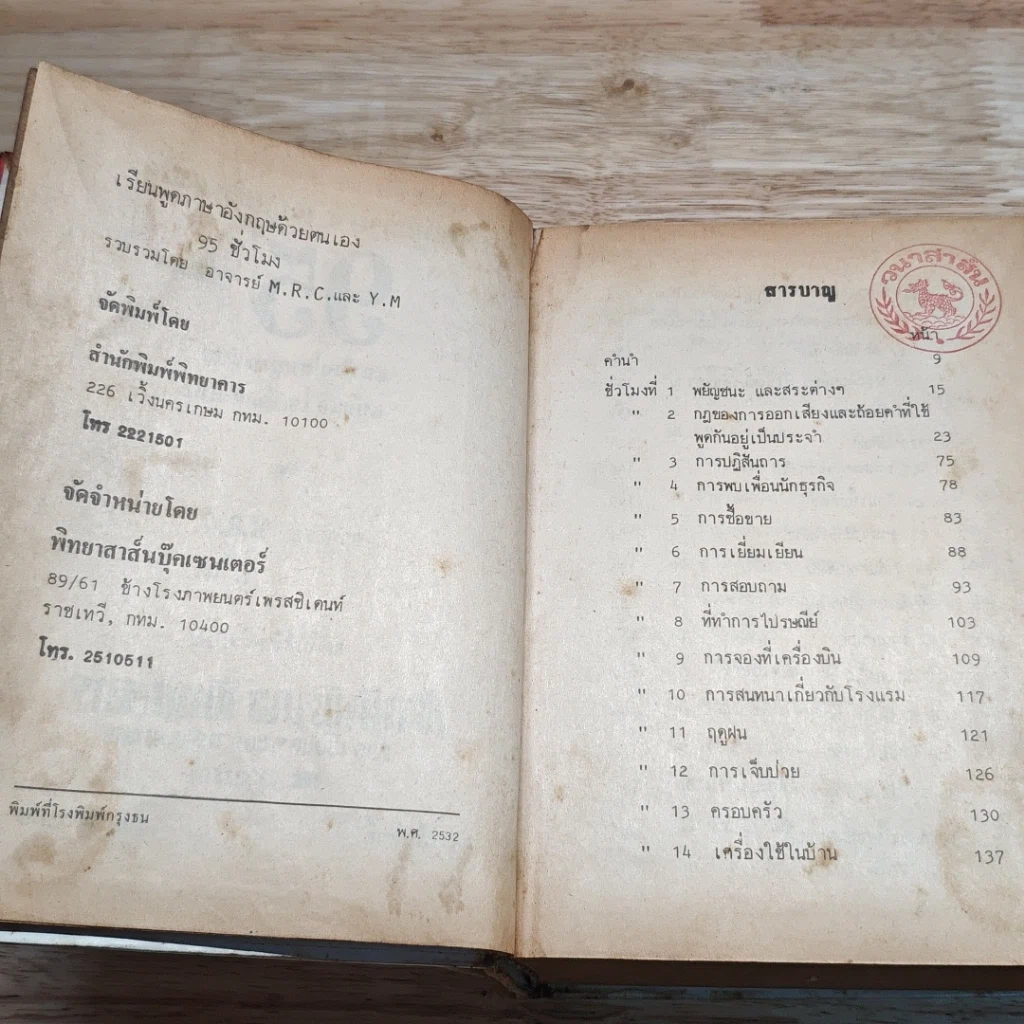 เรียนพูดภาษาอังกฤษด้วยตนเอง
95 ชั่วโมง
รวบรวมโดย อาจารย์ M.R.C.และ Y.M
จัดพิมพ์โดย
สำนักพิมพ์พิทยาคาร
226 เวิ้งนครเกษม กทม. 10100
โทร 2221501
จัดจำหน่ายโดย
พิทยาสาส์นบุ๊คเซนเตอร์
89/61 ข้างโรงภาพยนตร์เพรสซิเดนท์
ราชเทวี, กทม. 10400
โทร. 2510511
พิมพ์ที่โรงพิมพ์กรุงธน
พ.ศ. 2532
วนาสาส์น
สารบาญ
หน้า
คำนำ 9
ชั่วโมงที่ 1 พยัญชนะ และสระต่างๆ 15
" 2 กฎของการออกเสียงและถ้อยคำที่ใช้
พูดกันอยู่เป็นประจำ 23
" 3 การปฏิสันถาร 75
" 4 การพบเพื่อนนักธุรกิจ 78
" 5 การซื้อขาย 83
" 6 การเยี่ยมเยียน 88
" 7 การสอบถาม 93
" 8 ที่ทำการไปรษณีย์ 103
" 9 การจองที่เครื่องบิน 109
" 10 การสนทนาเกี่ยวกับโรงแรม 117
" 11 ฤดูฝน 121
" 12 การเจ็บป่วย 126
" 13 ครอบครัว 130
" 14 เครื่องใช้ในบ้าน 137